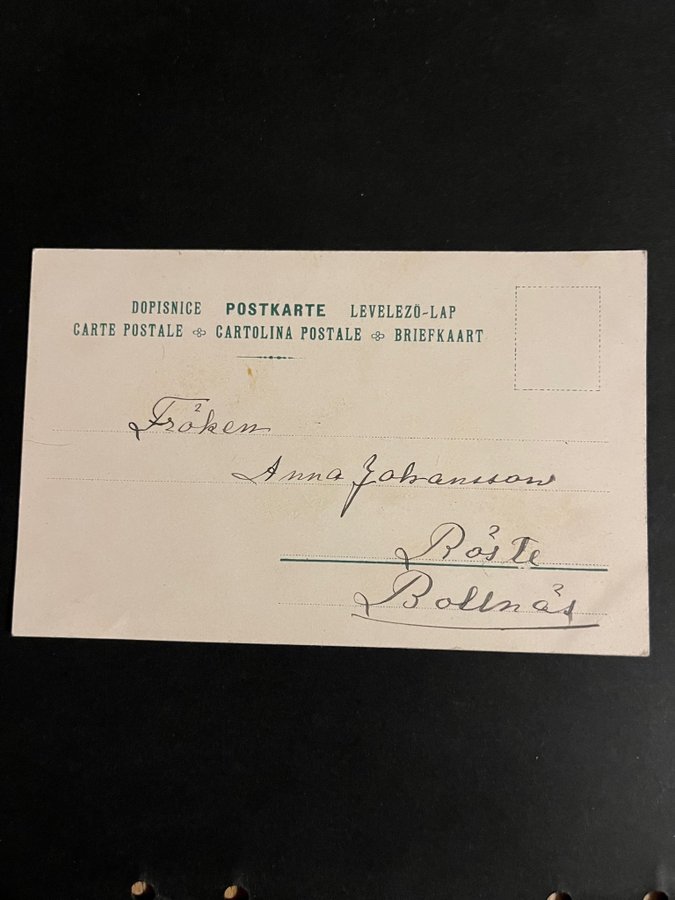 DOPISNICE POSTKARTE LEVELEZÖ-LAP
CARTE POSTALE CARTOLINA POSTALE BRIEFKAART
Fröken
Anna Johansson
Röste
Bollnäs